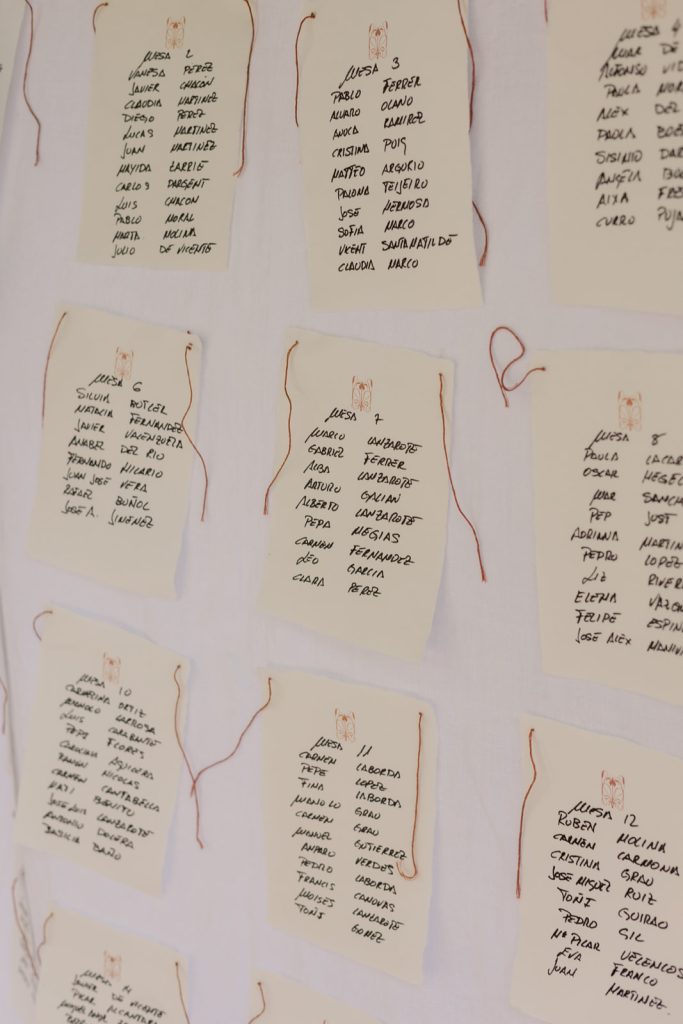 MESA 2
VANESA PEREZ
JAVIER CHACÓN
CLAUDIA MARTINEZ
DIEGO PEREZ
LUCAS MARTINEZ
JUAN MARTINEZ
MAYIDA ZARRIÉ
CARLOS DARGENT
LUIS CHACON
PABLO MORAL
MARTA MOLINA
JULIO DE VICENTE
MESA 3
PABLO FERRER
ALVARO OLANO
RAMIREZ
CRISTINA PUIG
MATTEO ARGURIO
PALOMA TEIJEIRO
JOSE HERMOSA
SOFIA MARCO
VICENT SANTAMATILDE
CLAUDIA MARCO
MESA 4
MAR DE
ALFONSO
PAULA
ALEX DEL
PAOLA
SISINIO
ANGELA
AIXA
CURRO
MESA 6
SILVIA BUTLER
NATALIA FERNANDEZ
JAVIER VALENZUELA
ANABEL DEL RIO
FERNANDO HILARIO
JUAN JOSÉ VERA
RAFAEL BUÑOL
JOSE A. JIMENEZ
MESA 7
MARIO LANZAROTE
GABRIEL FERRER
ALBA LANZAROTE
ARTURO GALIAN
ALBERTO LANZAROTE
PEPA MEGIAS
CARMEN FERNANDEZ
LEO GARCIA
CLARA PEREZ
MESA 8
PAULA
OSCAR
MAR
PEP JUST
ADRIANA
PEDRO LOPEZ
LIZ
ELENA
FELIPE
JOSE ALEX
MESA 10
CAROLINA ORTIZ
MANOLO LARROSA
LUIS CARABANTE
PEPI FLORES
CAROLINA AGUILERA
RAMON NICOLAS
CARMEN CANTABELLA
MATI BENITO
JOSE LUIS LANZAROTE
ANTONIO DOLERA
BASILIA BAÑO
MESA 11
CARMEN LABORDA
PEPE LOPEZ
FINA LABORDA
MANOLO GRAU
CARMEN GRAU
MANUEL GUTIERREZ
AMPARO VERDES
PEDRO LABORDA
FRANCIS CANOVAS
MOISES LANZAROTE
TOÑI GOMEZ
MESA 12
RUBEN MOLINA
CARMEN CARMONA
CRISTINA GRAU
JOSE MIGUEL RUIZ
TOÑI GUIRAO
PEDRO GIL
Mª PILAR
EVA FRANCO
JUAN MARTINEZ
MESA
JAVIER DE VICENTE
PILAR ALCANTARA